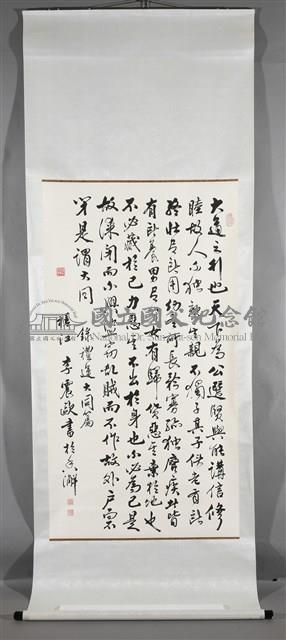 大道之行也天下為公選賢與能講信修
睦故人不獨親其親不獨子其子使老有所
終壯有所用幼有所長矜寡孤獨廢疾者皆
有所養男有分女有歸貨惡其棄於地也
不必藏於己力惡其不出於身也不必為己是
故謀閉而不興盜竊亂賊而不作故外戶而不
閉是謂大同
錄禮運大同篇
李震歐書於
國立國父紀念館